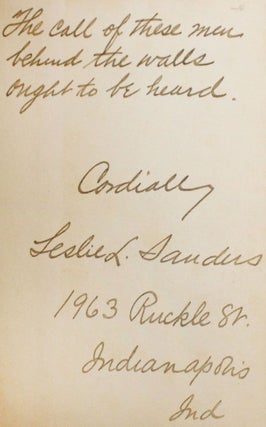 The call of these men
behind the walls
ought to be heard.
Cordially
Leslie L. Sanders
1963 Ruckle St.
Indianapolis
Ind